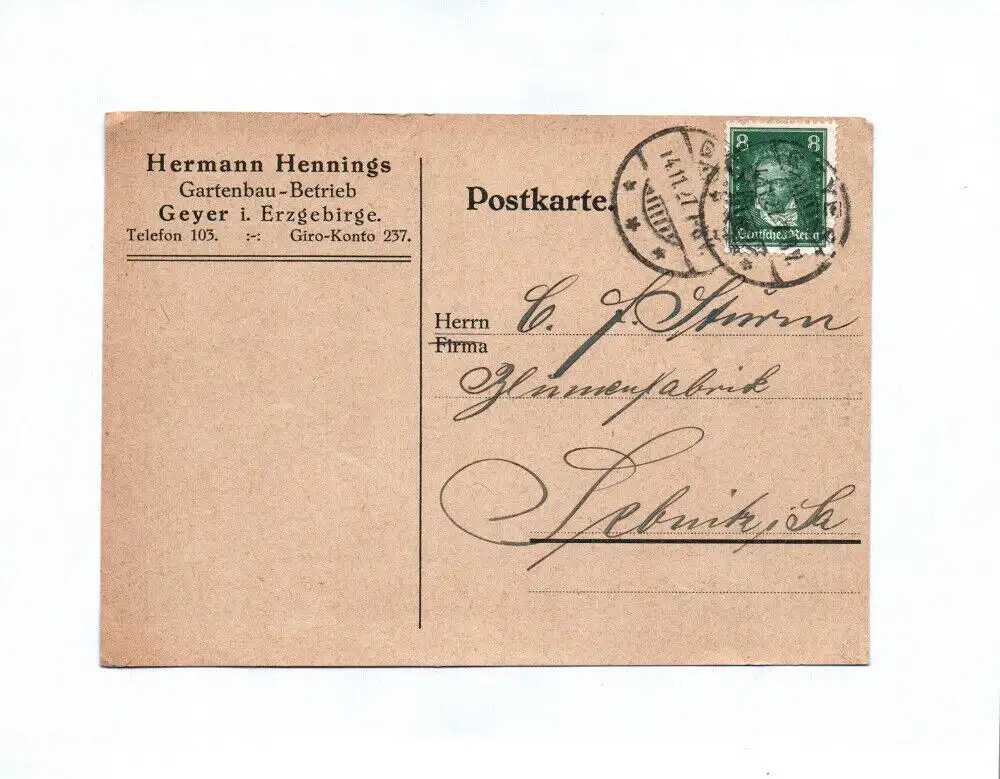 Hermann Hennings
Gartenbau-Betrieb
Geyer i. Erzgebirge.
Telefon 103. :-: Giro-Konto 237.
Postkarte.
8 8
Deutsches Reich
14.11.27
Herrn
Firma
C. F. Sturm
Blumenfabrik
Sebnitz i/Sa